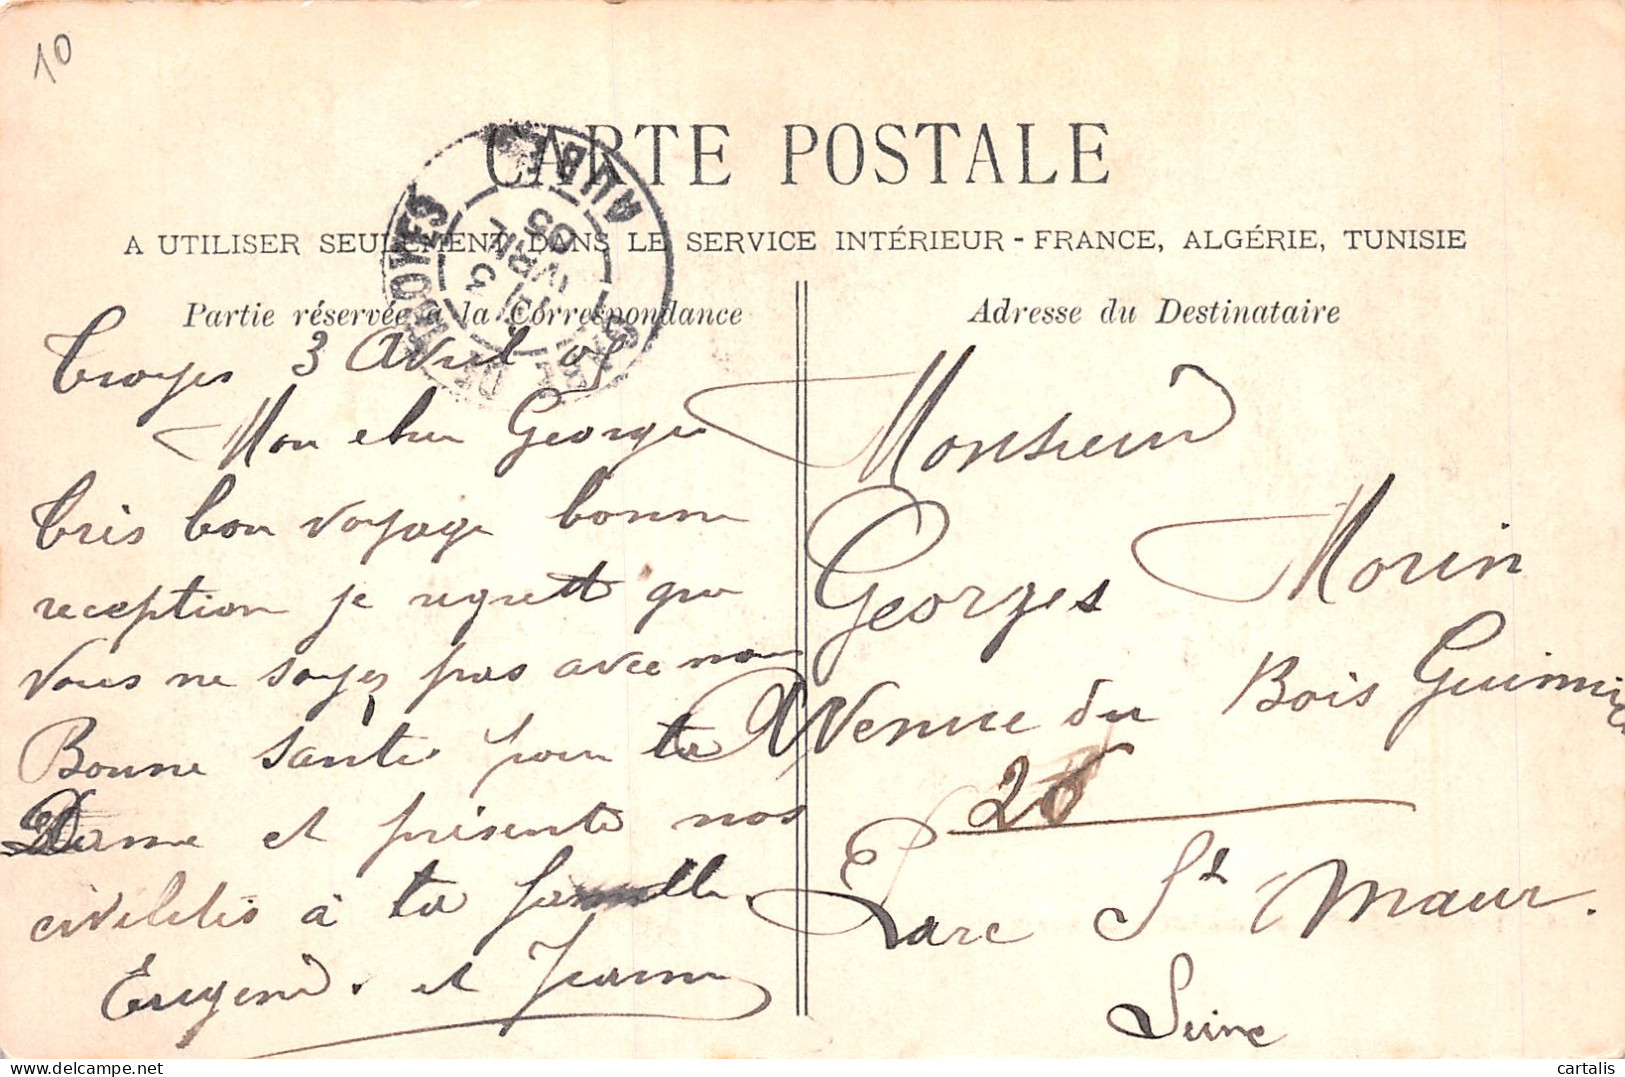 10
CARTE POSTALE
A UTILISER SEULEMENT DANS LE SERVICE INTÉRIEUR - FRANCE, ALGÉRIE, TUNISIE
Partie réservée à la Correspondance
Troyes 3 Avril 05
Mon cher Georges
Très bon voyage bonne
reception je regrett que
vous ne soyez pas avec nous
Bonne santé pour ta
Dame et présente nos
civilités à ta famille.
Eugène. et Jeanne
Adresse du Destinataire
Monsieur
Georges Morin
Avenue du Bois Guimier
26
Parc St Maur.
Seine
TROYES
AUBE
3
AVRIL
05
cartalis